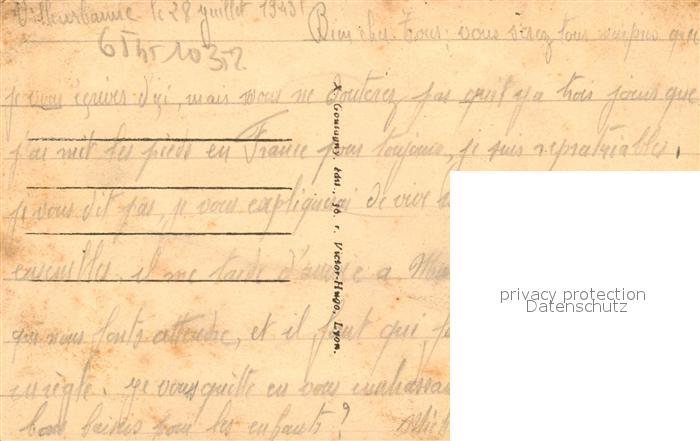 Villeurbanne le 28 juillet 1943
Bien cher Tous, vous serez tous surpris que
6 Thr 10352
je vous écrives d'ici, mais vous ne douterez pas qu'il y a trois jours que
j'ai mit les pieds en France pour toujours, je suis repratriables.
je vous dit pas, je vous expliquerai de vive
ensembles. il me tarde d'arrive a
qui nous fonts attendre, et il faut qui
en règle. je vous quitte en vous embrassan
bons baisers pour les enfants ?
X. Goutagny, édit., 36, r. Victor-Hugo, Lyon.
privacy protection
Datenschutz